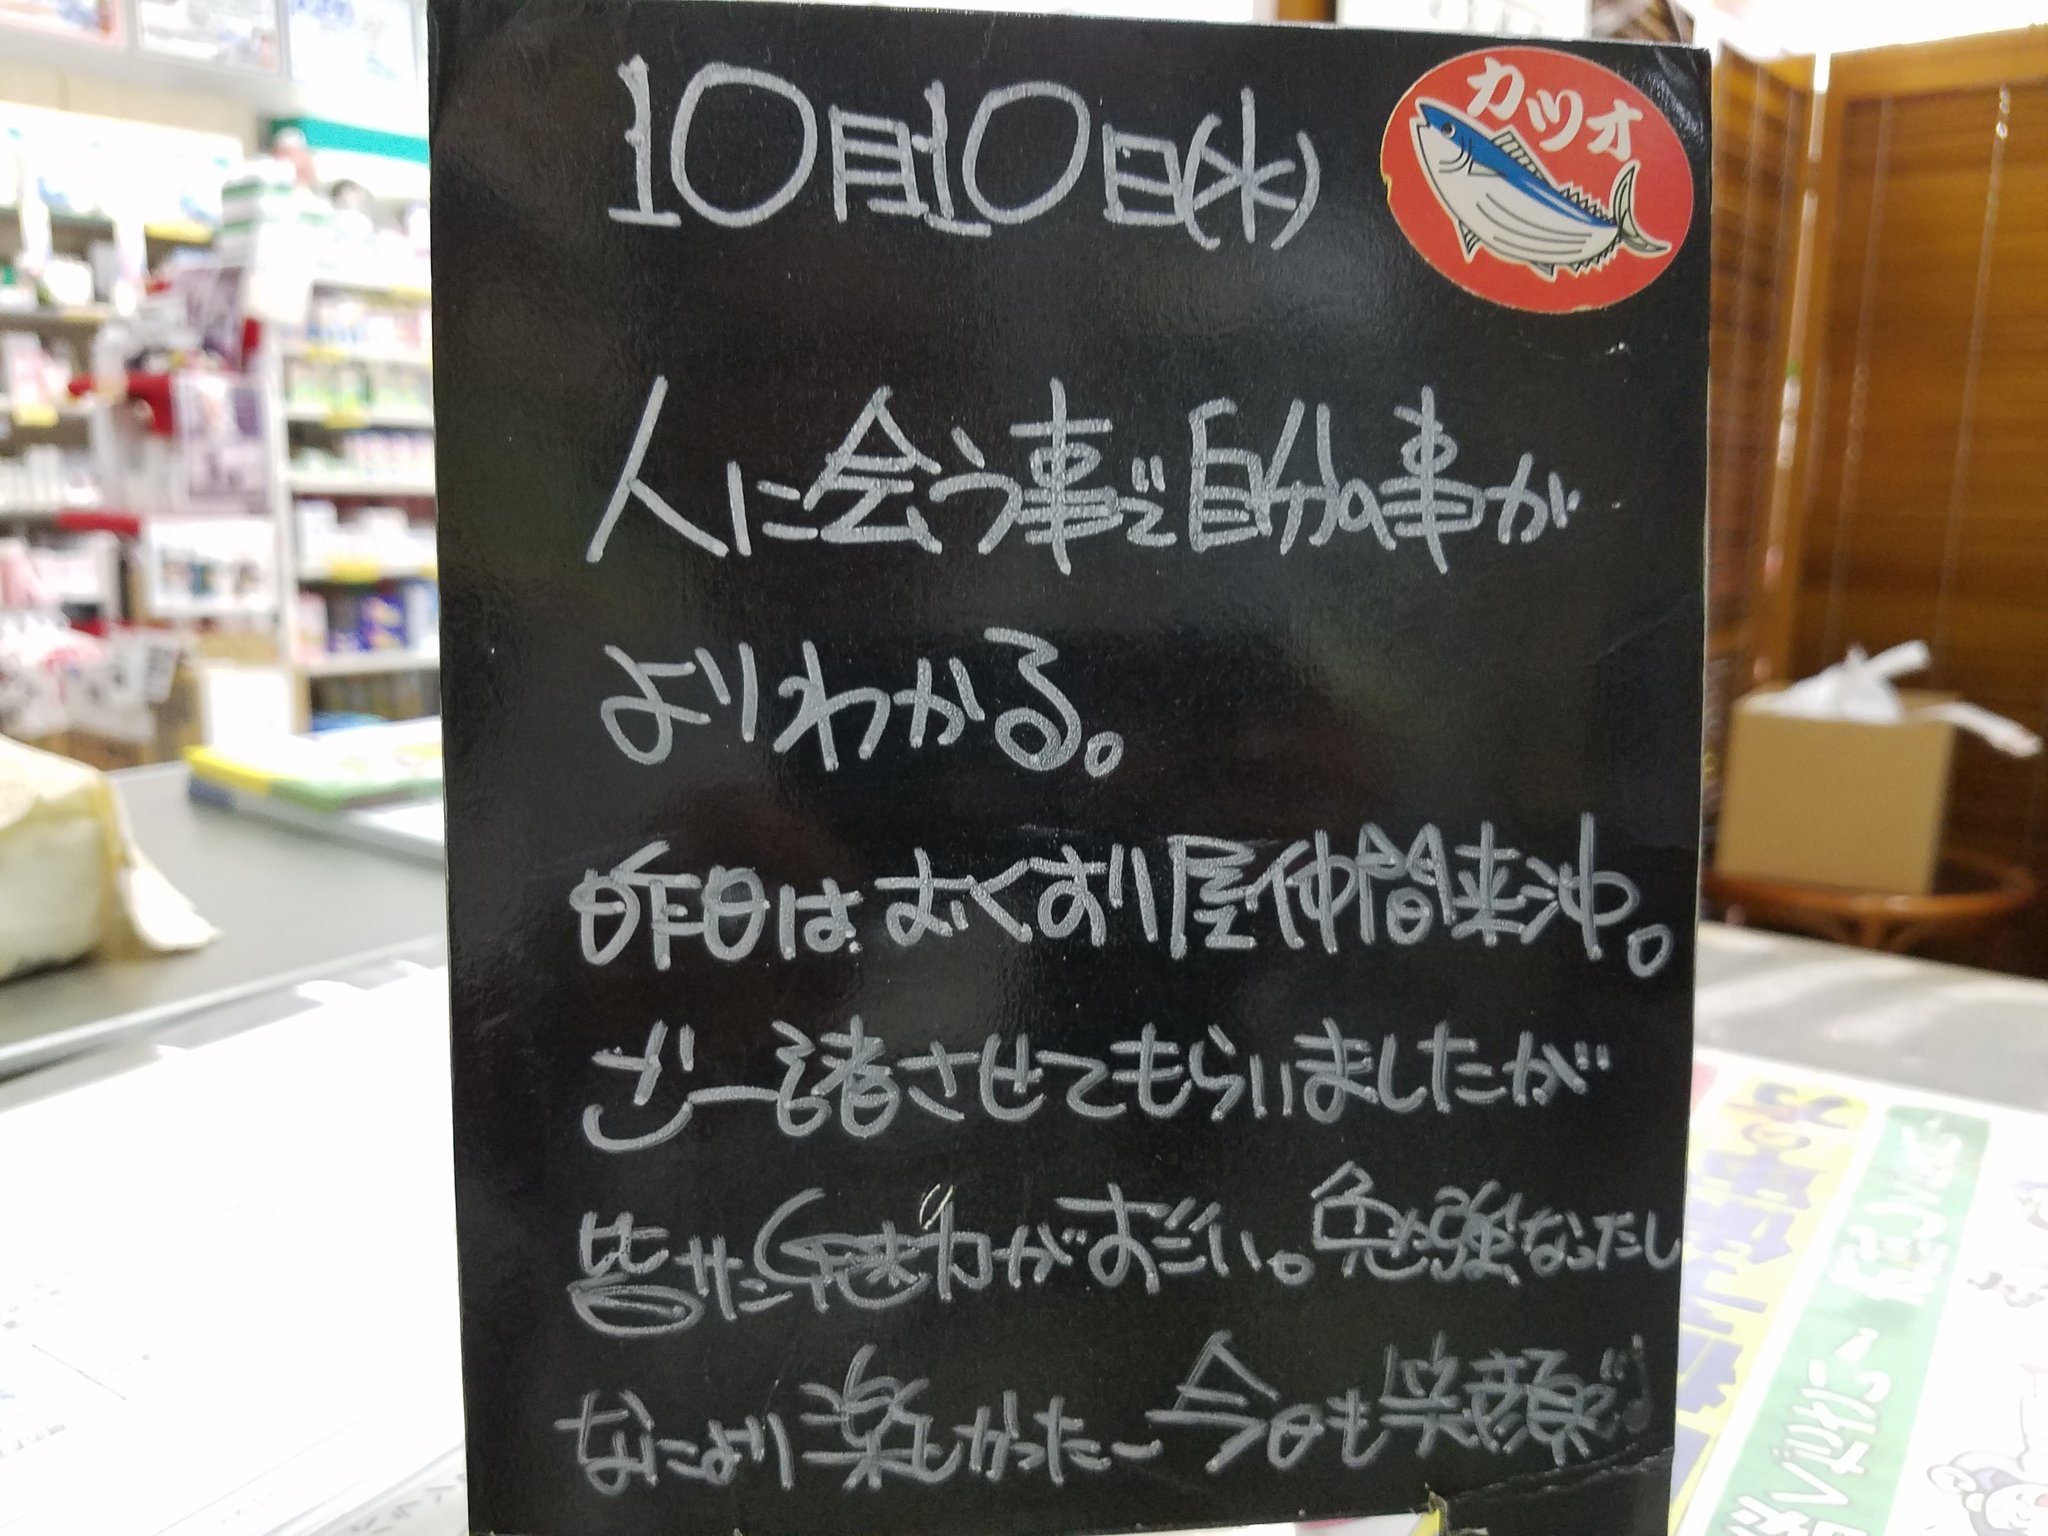 10月10日(水)
カツオ
人に会う事で自分の事が
よりわかる。
昨日はおくすり屋仲間来沖。
ご一緒させてもらいましたが
皆さん魅力がすごい。勉強なったし
なにより楽しかったー今日も笑顔で!